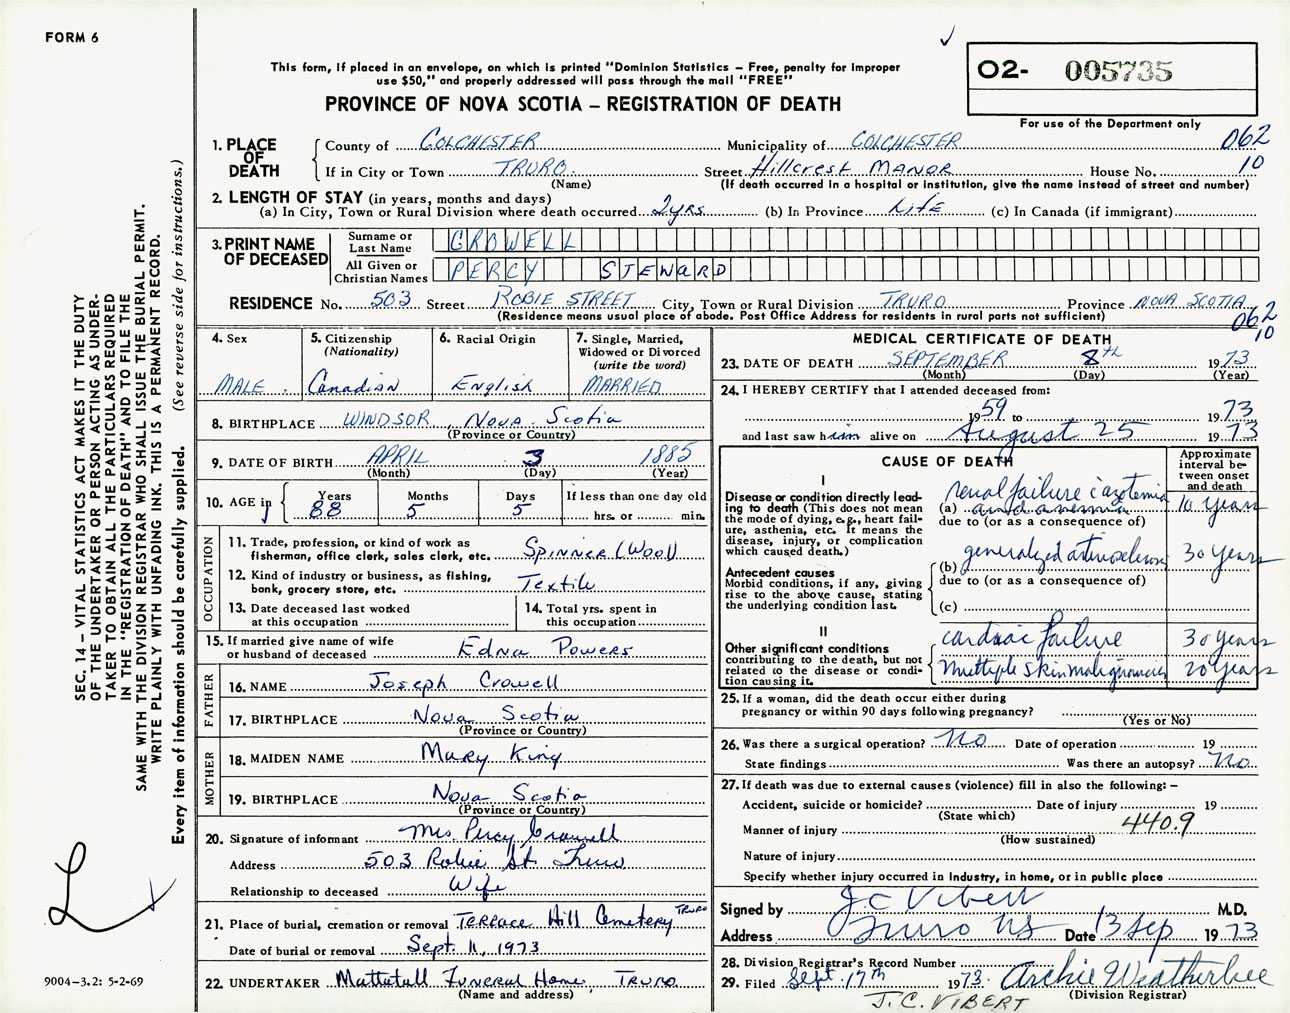 FORM 6
This form, if placed in an envelope, on which is printed "Dominion Statistics – Free, penalty for improper
use $50," and properly addressed will pass through the mail "FREE"
PROVINCE OF NOVA SCOTIA – REGISTRATION OF DEATH
02- 005735
For use of the Department only
062
10
1. PLACE OF DEATH
County of COLCHESTER Municipality of COLCHESTER
If in City or Town TRURO. Street Hillcrest MANOR House No.
(Name) (If death occurred in a hospital or institution, give the name instead of street and number)
2. LENGTH OF STAY (in years, months and days)
(a) In City, Town or Rural Division where death occurred 2yrs (b) In Province Life (c) In Canada (if immigrant)
3. PRINT NAME OF DECEASED
Surname or Last Name CROWELL
All Given or Christian Names PERCY STEWARD
RESIDENCE No. 503 Street ROBIE STREET City, Town or Rural Division TRURO Province NOVA SCOTIA
(Residence means usual place of abode. Post Office Address for residents in rural parts not sufficient)
062
10
4. Sex
MALE.
5. Citizenship
(Nationality)
Canadian
6. Racial Origin
English
7. Single, Married,
Widowed or Divorced
(write the word)
MARRIED
8. BIRTHPLACE WINDSOR, Nova Scotia
(Province or Country)
9. DATE OF BIRTH APRIL 3 1885
(Month) (Day) (Year)
10. AGE in
Years Months Days If less than one day old
88 5 5 hrs. or min.
OCCUPATION
11. Trade, profession, or kind of work as
fisherman, office clerk, sales clerk, etc. SPINNER (Wool)
12. Kind of industry or business, as fishing,
bank, grocery store, etc. Textile
13. Date deceased last worked
at this occupation
14. Total yrs. spent in
this occupation
15. If married give name of wife
or husband of deceased Edna Powers
FATHER
16. NAME Joseph Crowell
17. BIRTHPLACE Nova Scotia
(Province or Country)
MOTHER
18. MAIDEN NAME Mary King
19. BIRTHPLACE Nova Scotia
(Province or Country)
20. Signature of informant Mrs. Percy Crowell
Address 503 Robie St. Truro
Relationship to deceased Wife
21. Place of burial, cremation or removal Terrace Hill Cemetery TRURO
Date of burial or removal Sept. 11, 1973
22. UNDERTAKER Mattatall Funeral Home, TRURO
(Name and address)
MEDICAL CERTIFICATE OF DEATH
23. DATE OF DEATH SEPTEMBER 8th 1973
(Month) (Day) (Year)
24. I HEREBY CERTIFY that I attended deceased from:
1959 to 1973
and last saw him alive on August 25 1973
CAUSE OF DEATH
Approximate
interval be-
tween onset
and death
I
Disease or condition directly lead-
ing to death (This does not mean
the mode of dying, e.g., heart fail-
ure, asthenia, etc. It means the
disease, injury, or complication
which caused death.)
(a) renal failure c azotemia
and anemia 10 years
due to (or as a consequence of)
(b) generalized arteriosclerosis 30 years
Antecedent causes
Morbid conditions, if any, giving
rise to the above cause, stating
the underlying condition last.
due to (or as a consequence of)
(c)
II
Other significant conditions
contributing to the death, but not
related to the disease or condi-
tion causing it.
cardiac failure 30 years
multiple skin malignancies 20 years
25. If a woman, did the death occur either during
pregnancy or within 90 days following pregnancy?
(Yes or No)
26. Was there a surgical operation? No Date of operation 19
State findings Was there an autopsy? No
27. If death was due to external causes (violence) fill in also the following: –
Accident, suicide or homicide? Date of injury 19
(State which)
Manner of injury 440.9
(How sustained)
Nature of injury
Specify whether injury occurred in industry, in home, or in public place
Signed by J.C Vibert M.D.
Address Truro NS Date 13 Sep 1973
28. Division Registrar's Record Number
29. Filed Sept. 17th 1973. Archie Weatherbee
(Division Registrar)
J.C. VIBERT
SEC. 14 – VITAL STATISTICS ACT MAKES IT THE DUTY
OF THE UNDERTAKER OR PERSON ACTING AS UNDER-
TAKER TO OBTAIN ALL THE PARTICULARS REQUIRED
IN THE "REGISTRATION OF DEATH" AND TO FILE THE
SAME WITH THE DIVISION REGISTRAR WHO SHALL ISSUE THE BURIAL PERMIT.
WRITE PLAINLY WITH UNFADING INK. THIS IS A PERMANENT RECORD.
Every item of information should be carefully supplied. (See reverse side for instructions.)
L
9004–3.2: 5-2-69